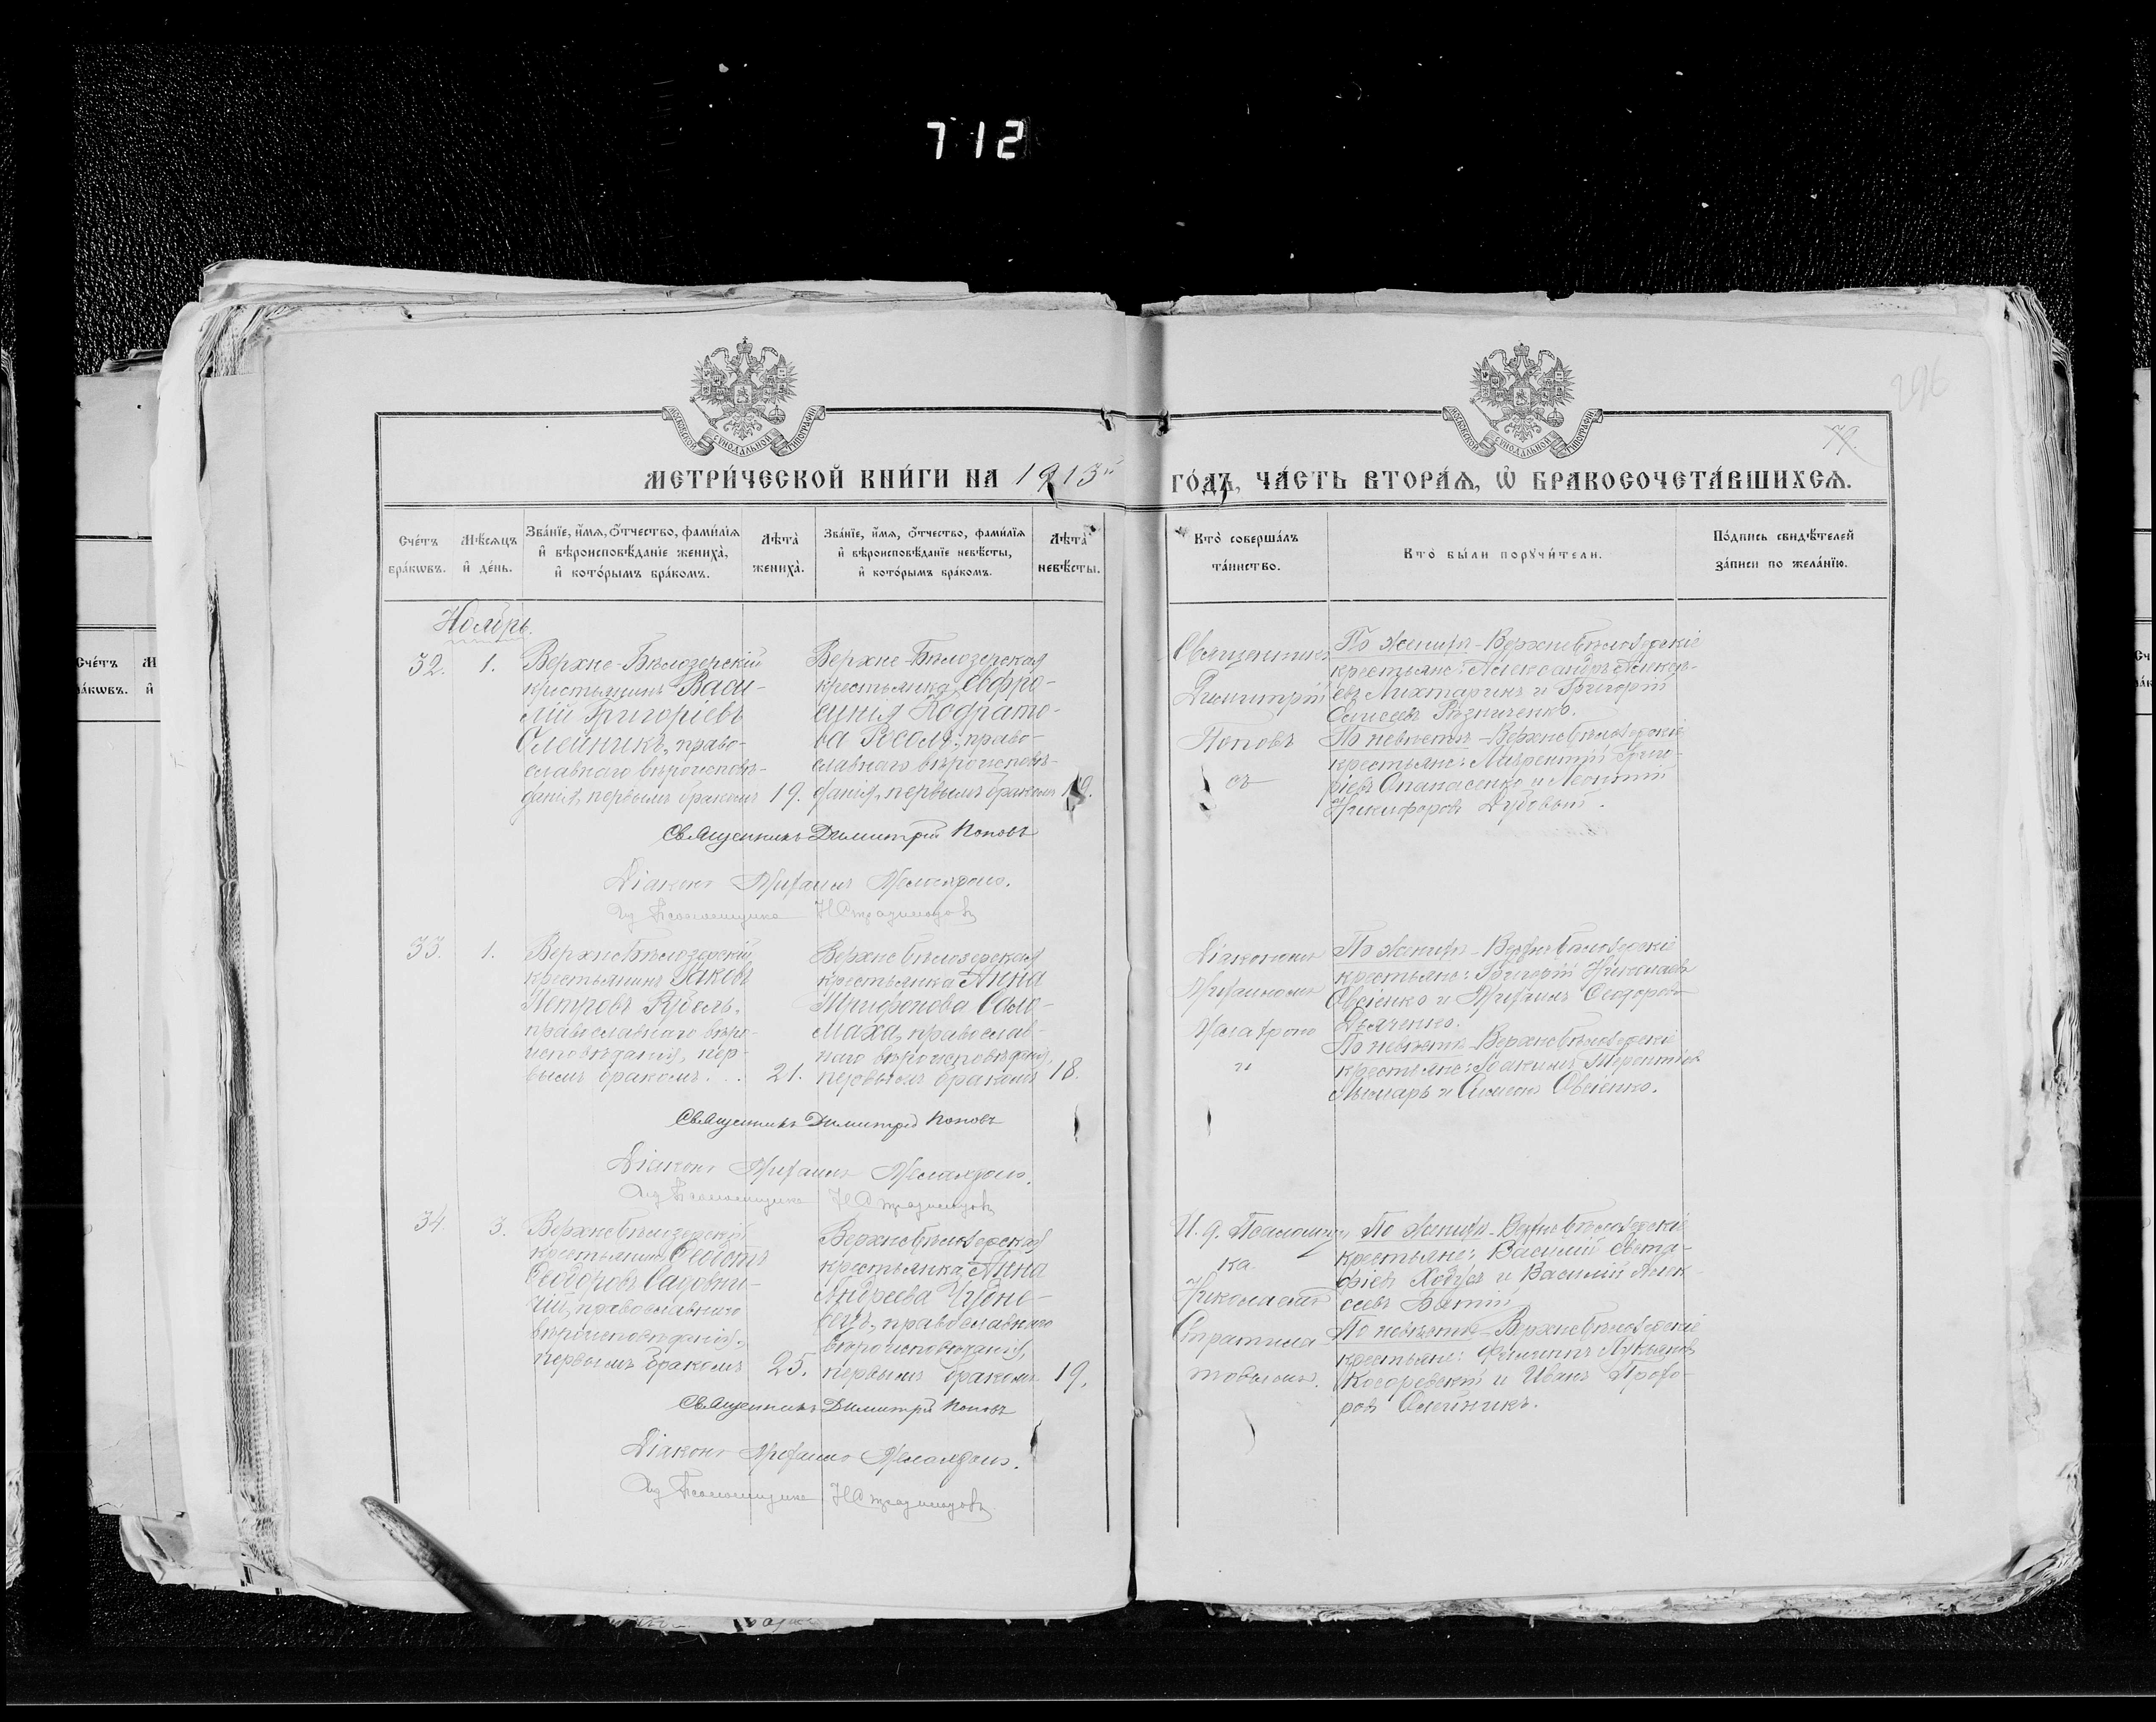 712
296
79.
МОСКОВСКОЙ СѴНОДАЛЬНОЙ ТИПОГРАФІИ
МОСКОВСКОЙ СѴНОДАЛЬНОЙ ТИПОГРАФІИ
МЕТРИ́ЧЕСКОЙ КНИ́ГИ НА 1913й ГО́ДЪ, ЧА́СТЬ ВТОРА́Ѧ, Ѽ БРАКОСОЧЕТА́ВШИХСѦ.
Сче́тъ
бра́кѡвъ.
Мѣ́сѧцъ
и҆ де́нь.
Зва́нїе, и҆́мѧ, ѻ҆́тчество, фами́лїѧ
и҆ вѣроисповѣ́данїе жениха̀,
и҆ кото́рымъ бра́комъ.
Лѣта̀
жениха̀.
Зва́нїе, и҆́мѧ, ѻ҆́тчество, фами́лїѧ
и҆ вѣроисповѣ́данїе невѣ́сты,
и҆ кото́рымъ бра́комъ.
Лѣта̀
невѣ́сты.
Кто̀ соверша́лъ
та́инство.
Кто̀ бы́ли порꙋчи́тели.
По́дпись свидѣ́телей
за́писи по жела́нїю.
Ноябрь.
32.
1.
Верхне-Бѣлозерскій
крестьянинъ Васи-
лій Григоріевъ
Олейникъ, право-
славнаго вѣроисповѣ-
данія, первымъ бракомъ
19.
Верхне-Бѣлозерская
крестьянка Евфро-
синія Кодрато-
ва Россолъ, право-
славнаго вѣроисповѣ-
данія, первымъ бракомъ
Священникъ
Димитрій
Поповъ
По женихѣ-Верхнебѣлозерскіе
крестьяне: Александръ Алексѣ-
евъ Лихтаринъ и Григорій
Елисеевъ Рѣзниченко.
По невѣстѣ-Верхнебѣлозерскіе
крестьяне: Лаврентій Григо-
ріевъ Опанасенко и Леонтій
Никифоровъ Дубовый.
Священникъ Димитрій Поповъ
Діаконъ Михаилъ
33.
1.
Верхнебѣлозерскій
крестьянинъ Іаковъ
Петровъ Кубель,
православнаго вѣро-
исповѣданія, пер-
вымъ бракомъ...
21.
Верхнебѣлозерская
крестьянка Анна
Трифонова Соло-
маха, православ-
наго вѣроисповѣданія,
первымъ бракомъ
18.
Діакономъ
Михаиломъ
По женихѣ-Верхнебѣлозерскіе
крестьяне: Григорій Николаевъ
Овсіенко и Михаилъ Ѳеодоровъ
Дьяченко.
По невѣстѣ-Верхнебѣлозерскіе
крестьяне: Іоакимъ Терентіевъ
и Симеонъ Овсіенко.
Священникъ Димитрій Поповъ
Діаконъ Михаилъ
34.
3.
Верхнебѣлозерскій
крестьянинъ Ѳеодотъ
Ѳеодоровъ Садовни-
чій, православнаго
вѣроисповѣданія,
первымъ бракомъ
25.
Верхнебѣлозерская
крестьянка Анна
Андреева Чудне-
православнаго
вѣроисповѣданія,
первымъ бракомъ
19.
И. д. Псаломщи
ка
Николаемъ
По женихѣ-Верхнебѣлозерскіе
крестьяне: Василій Евста-
фіевъ Ходусъ и Василій Алек-
сѣевъ
По невѣстѣ-Верхнебѣлозерскіе
крестьяне: Филиппъ Лукьяновъ
Косаревскій и Иванъ Прохо-
ровъ Олейникъ.
Священникъ Димитрій Поповъ
Діаконъ Михаилъ